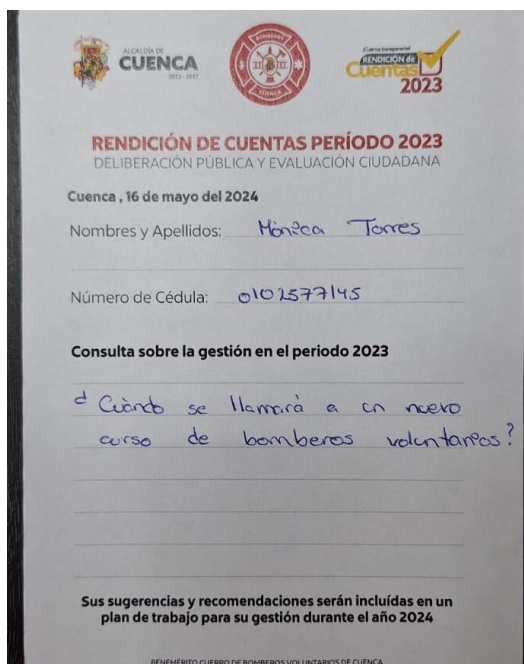 ALCALDÍA DE
CUENCA
2023 - 2027
BOMBEROS
CUENCA
¡Cuenca transparente!
RENDICIÓN de
Cuentas
2023
RENDICIÓN DE CUENTAS PERÍODO 2023
DELIBERACIÓN PÚBLICA Y EVALUACIÓN CIUDADANA
Cuenca , 16 de mayo del 2024
Nombres y Apellidos: Mònica Torres
Número de Cédula: 0102577145
Consulta sobre la gestión en el periodo 2023
¿ Cuàndo se llamarà a un nuevo
curso de bomberos voluntarios?
Sus sugerencias y recomendaciones serán incluídas en un
plan de trabajo para su gestión durante el año 2024
BENEMÉRITO CUERPO DE BOMBEROS VOLUNTARIOS DE CUENCA